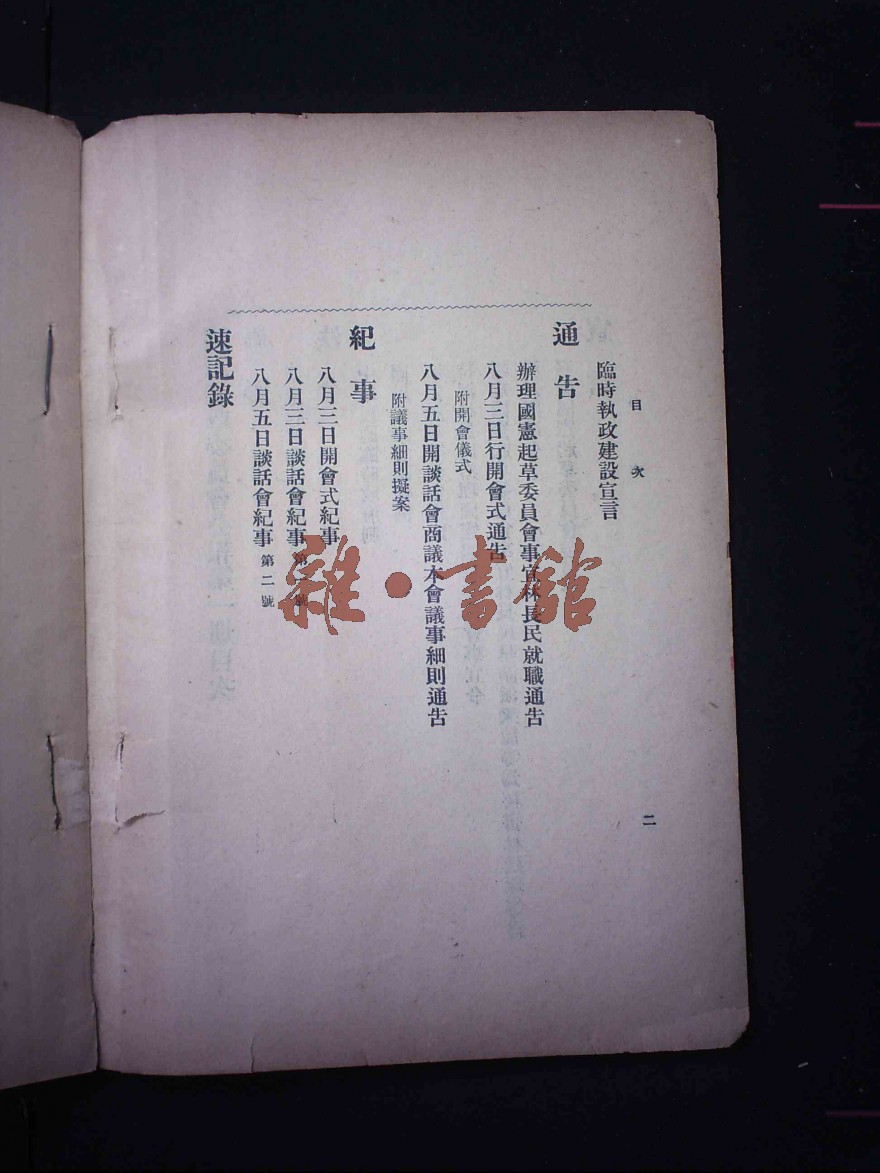 目次
二
臨時執政建設宣言
通告
辦理國憲起草委員會事宜林長民就職通告
八月三日行開會式通告
附開會儀式
八月五日開談話會商議本會議事細則通告
附議事細則擬案
紀事
八月三日開會式紀事
八月三日談話會紀事 第一號
八月五日談話會紀事 第二號
速記錄
雜·書館